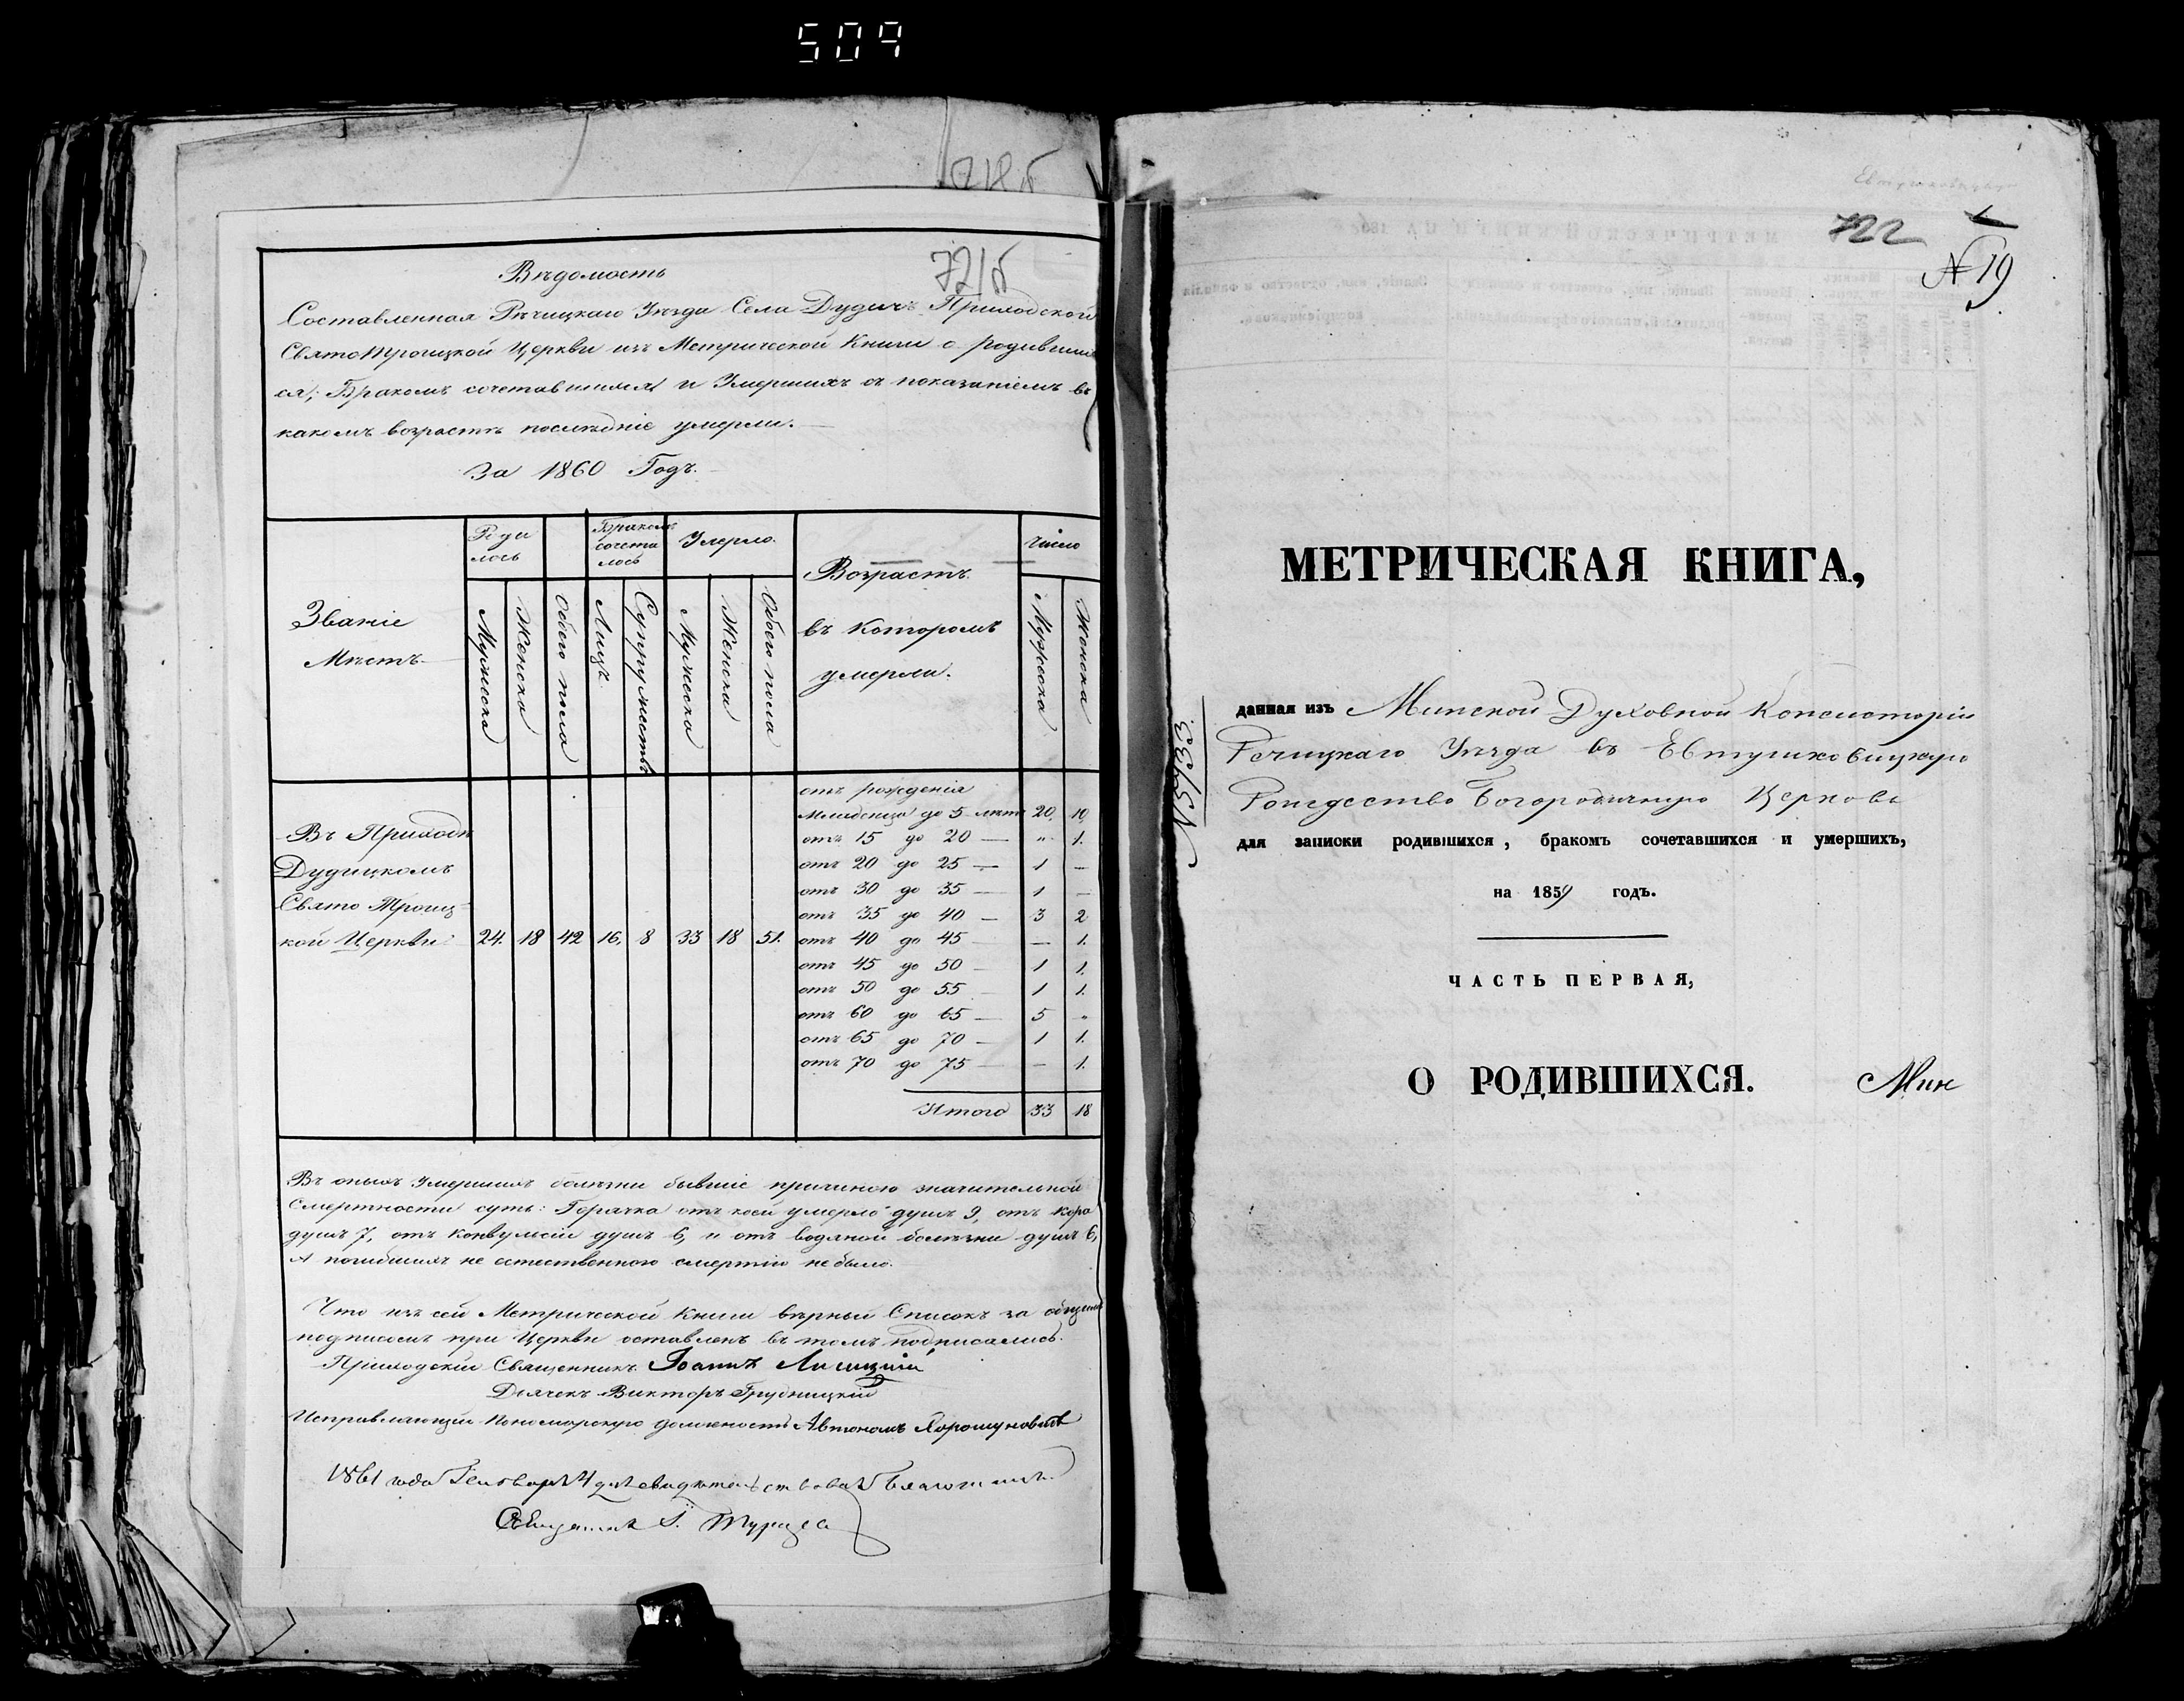 509
721б
Вѣдомость
Составленная Рѣчицкаго Уѣзда Села Дудичъ Приходской
Свято Троицкой Церкви изъ Метрической Книги о родивших
ся, Бракомъ сочетавшихся и Умершихъ съ показаніемъ въ
какомъ возрастѣ послѣдніе умерли.
За 1860 Годъ.
Званіе
Мѣстъ
Роди
лось
Бракомъ
сочета
лось
Умерло.
Возрастъ
въ которомъ
умерли.
Число
Мужеска
Женска
Обоего пола
Лицъ
Супружествъ
Мужеска
Женска
Обоего пола
Мужеска
Женска
Въ Приходѣ
Дудицкомъ
Свято Троиц-
кой Церкви
24. 18 42 16. 8 33 18 51.
отъ рожденія
Младенца до 5 лѣтъ 20. 10
отъ 15 до 20 — „ 1.
отъ 20 до 25 — 1 —
отъ 30 до 35 — 1 —
отъ 35 до 40 — 3 2
отъ 40 до 45 — — 1.
отъ 45 до 50 — 1 1.
отъ 50 до 55 — 1 1.
отъ 60 до 65 — 5 „
отъ 65 до 70 — 1 1.
отъ 70 до 75 — — 1.
Итого 33 18
Въ оныхъ Умершихъ болѣзни бывшіе причиною значительной
Смертности суть: Горячка отъ коей умерло душъ 9, отъ кора
душъ 7, отъ конвульсіи душъ 6, и отъ водяной болѣзни душъ 6,
А погибшихъ не естественною смертію не было.
Что изъ сей Метрической Книги вѣрный Списокъ за общимъ
подписомъ при Церкви оставленъ въ томъ подписались.
Приходскій Священникъ Іоаннъ Лисицкій
Дьячекъ Викторъ Грудницкій
Исправляющій Пономарскую должность Автономъ Хорошуновичъ
1861 года Генваря 4 дня свидѣтельствовалъ Благочинный
Священникъ І.
722
1
N 19
МЕТРИЧЕСКАЯ КНИГА,
данная изъ Минской Духовной Консисторіи
Речицкаго Уѣзда въ Евтушковицкую
Рождество Богородичную Церковь
для записки родившихся, бракомъ сочетавшихся и умершихъ,
на 1859 годъ.
ЧАСТЬ ПЕРВАЯ,
О РОДИВШИХСЯ.
Мин